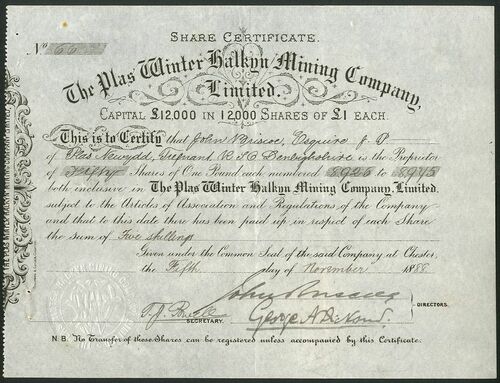 SHARE CERTIFICATE.
No 66
The Plas Winter Halkyn Mining Company,
Limited.
CAPITAL £12,000 IN 12,000 SHARES OF £1 EACH.
This is to Certify that John Briscoe, Esquire J. P.
of Plas Newydd, Trefnant R.S.O Denbighshire is the Proprietor
of Fifty Shares of One Pound each numbered 8926 to 8975
both inclusive in The Plas Winter Halkyn Mining Company, Limited.
subject to the Articles of Association and Regulations of the Company
and that to this date there has been paid up in respect of each Share
the sum of Five shillings
Given under the Common Seal of the said Company at Chester,
the Fifth day of November 1888
DIRECTORS.
SECRETARY.
George A Dickson
N.B. No Transfer of these Shares can be registered unless accompanied by this Certificate.